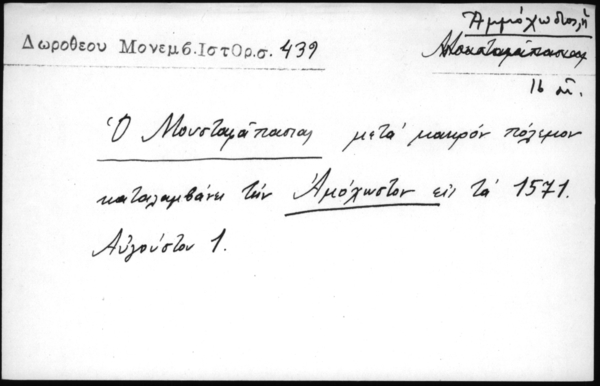 Ἀμμόχωστος
Δωροθεου Μονεμβ.ΙστΟρ.σ. 439
Μουσταφάπασας
16 αἰ.
Ὁ Μουσταφάπασας μετά μακρόν πόλεμον
καταλαμβάνει τήν Ἀμόχωστον εἰς τά 1571.
Αὐγούστου 1.